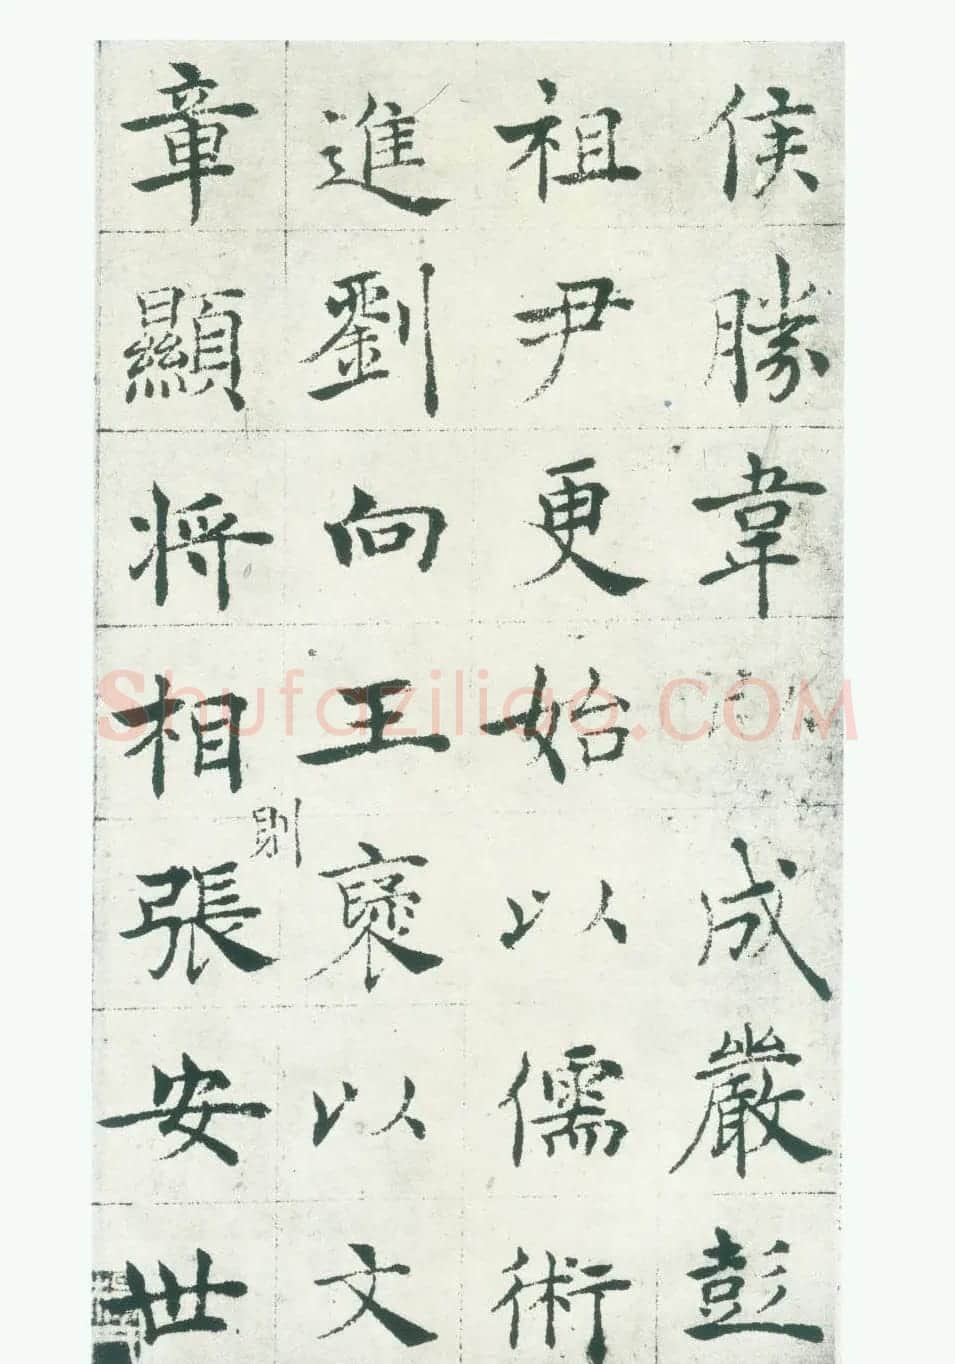 侯勝韋成嚴彭
祖尹更始以儒術
進劉向王褒以文
則
章顯將相張安世
Shufaziliao.COM